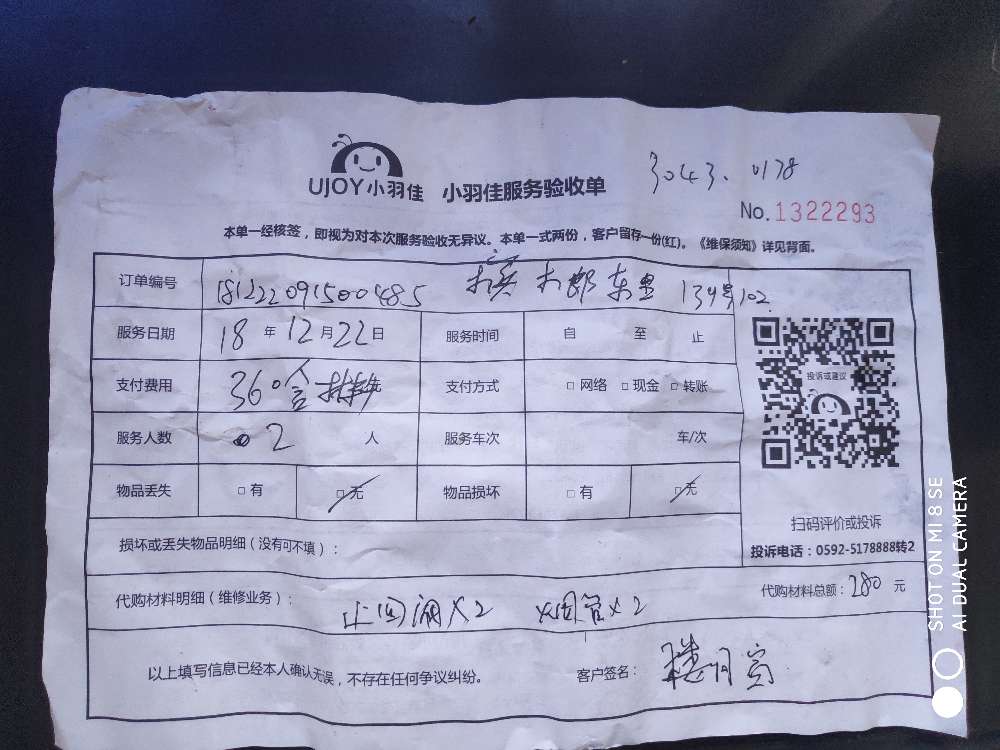 UJOY小羽佳 小羽佳服务验收单
3043.0178
No.1322293
本单一经核签，即视为对本次服务验收无异议。本单一式两份，客户留存一份(红)。《维保须知》详见背面。
订单编号 181222091500485 东里 134号102
服务日期 18 年 12 月 22 日 服务时间 自 至 止
支付费用 360 元 支付方式 □ 网络 □ 现金 □ 转账
服务人数 2 人 服务车次 车/次
物品丢失 □ 有 □ 无 物品损坏 □ 有 □ 无
投诉或建议
扫码评价或投诉
投诉电话：0592-5178888转2
损坏或丢失物品明细（没有可不填）：
代购材料明细（维修业务）： 止回阀X2 烟管X2 代购材料总额：280 元
以上填写信息已经本人确认无误，不存在任何争议纠纷。 客户签名：
SHOT ON MI 8 SE
AI DUAL CAMERA